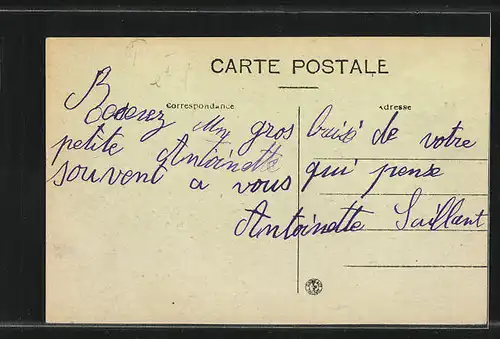 CARTE POSTALE
Correspondance
Adresse
Recevez un gros baisé de votre
petite Antoinette qui pense
souvent a vous
Antoinette Saillant